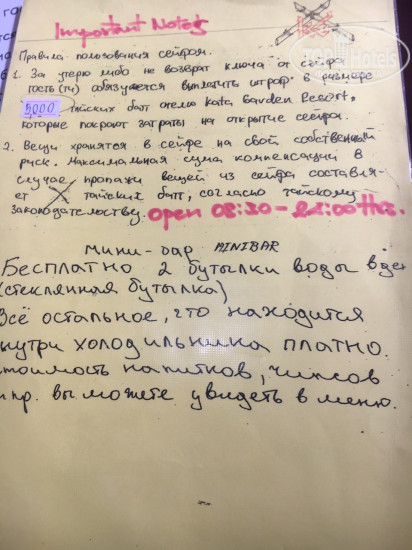 Important Notes
TopHotels
Правила пользования сейфом.
1. За утерю либо не возврат ключа от сейфа
гость(ти) обязуется выплатить штраф в размере
5000 тайских батт отелю Kata Garden Resort,
которые покроют затраты на открытие сейфа.
2. Вещи хранятся в сейфе на свой собственный
риск. Максимальная сума компенсации в
случае пропажи вещей из сейфа составля-
ет тайских батт, согласно тайскому
законодательству. Open 08:30 - 22:00 Hrs.
Мини-бар MINIBAR
Бесплатно 2 бутылки воды в де
(стеклянная бутылка)
Всё остальное, что находится
внутри холодильника платно.
стоимость напитков, чипсов
и пр. вы можете увидеть в меню.